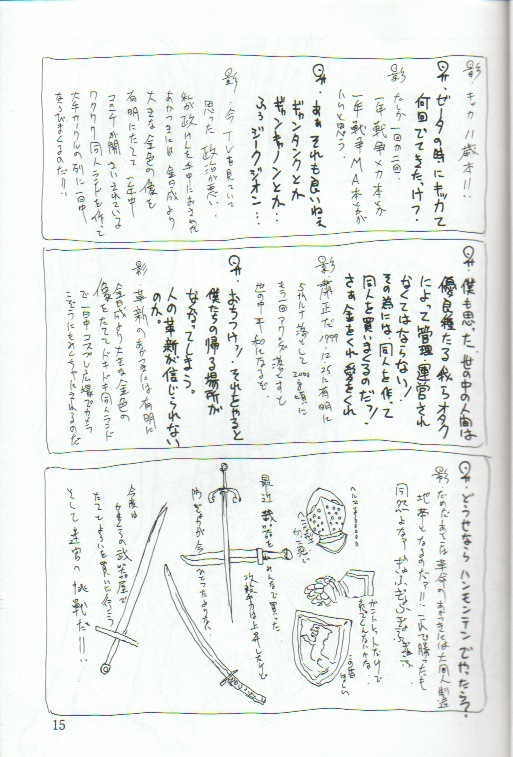 影・キッカ11歳本!!
・ゼータの時にキッカて
何回でてきたっけ?
影・たしか一回か二回・
一年戦争メカ本とか
一年戦争MA本とかが
いいと思う・
・あぁそれも良いねぇ
ギャンタンクとか
ギャンキャノンとか・・
ふふ ジークジオン・・・
影・今TVを見ていて
思った 政治が悪い・
私が政けんを手中におさめた
あかつきには金日成より
大きな金色の像を
有明にたてて一年中
コミケが開さいされている
ワクワク同人ランドを作って
大手サークルの列に一日中
ならびまくるのだ!!
・僕も思った、世の中の人間は
優良種たる我らオタク
によって管理・運営され
なくてはならない!
その為には同人を作って
同人を買いまくるのだッ!
さぁ金をくれ愛をくれ
影 粛正だ 1999.12.25に有明に
5thルナ落として2000年頃に
もう1コアクシズ落すと
世の中平和になるぞ
・おちつけ!それをやると
僕たちの帰る場所が
なくなってしまう。
人の革新が信じられない
のか。
影 革新のあかつきには有明に
金日成より大きな金色の
像をたててドキドキ同人ランド
で一日中コスプレ広場でカメラ
こぞうにもみくちゃにされるのだ
・どうせならハンモンテンでやったら?
影 だめだあそこは革命のあかつきには大同人製造
地帯となるのだァ!!これで勝ったも
同然だよなァ
ヘルム
ガントレットだけで
この盾
ほしい
最近武器をめんなで買った、
攻撃力は上昇したけど
防ぎょ力が今いちたよりない・
今度は
の武器屋で
たてとよろいを買いに行こう
そして迷宮へ挑戦だ!!
15